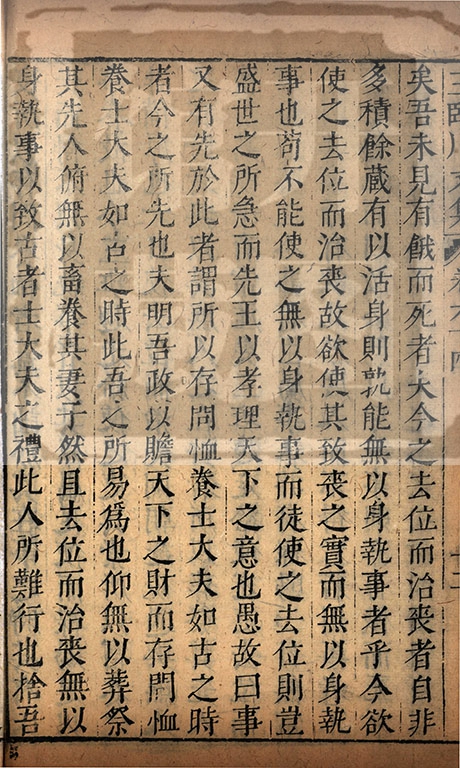 王臨川文集 卷六十四 十二
矣吾未見有餓而死者夫今之去位而治喪者自非
多積餘藏有以活身則孰能無以身執事者乎今欲
使之去位而治喪故欲使其致喪之實而無以身執
事也苟不能使之無以身執事而徒使之去位則豈
盛世之所急而先王以孝理天下之意也愚故曰事
又有先於此者謂所以存問恤養士大夫如古之時
者今之所先也夫明吾政以贍天下之財而存問恤
養士大夫如古之時此吾之所易爲也仰無以葬祭
其先人俯無以畜養其妻子然且去位而治喪無以
身執事以致古者士大夫之禮此人所難行也捨吾